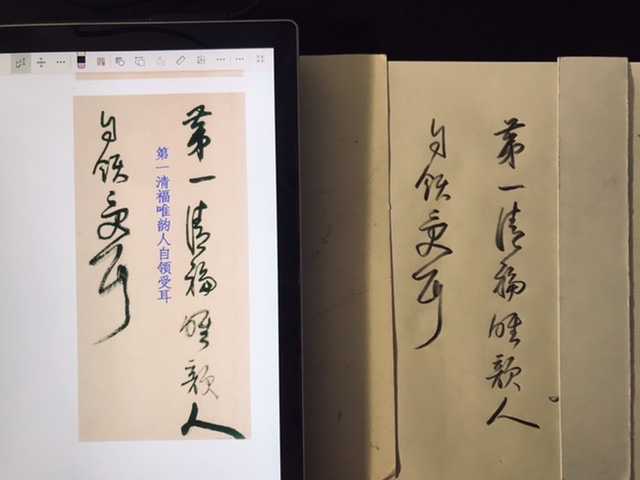 第一清福唯韵人
自领受耳
第一清福唯韵人自领受耳
第一清福唯韵人
自领受耳